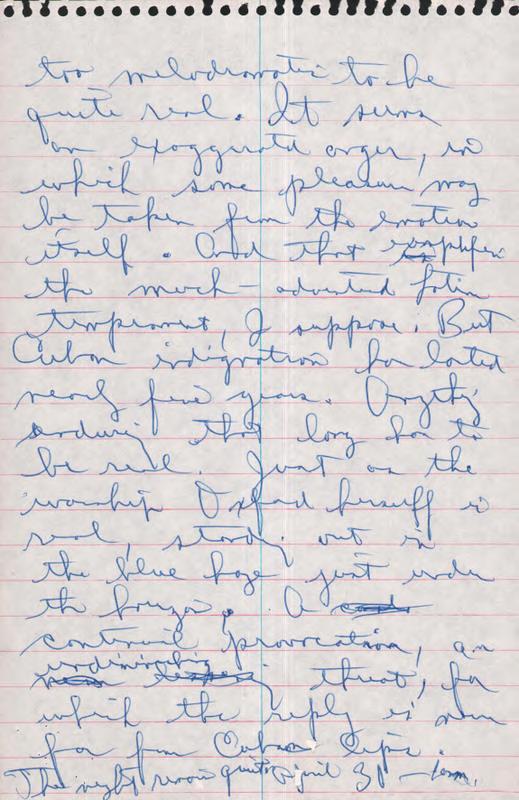 too melodramatic to be
quite real. It seems
an exaggerated anger, in
which some pleasure may
be taken from the emotion
itself. And that
the much-advertised Latin
temperament, I suppose. But
Cuban indignation has lasted
nearly five years. Anything
enduring that long has to
be real. Just as the
warship Oxford herself is
real, standing out in
the blue haze just under
the horizon. A
continual provocation, an
undiminishing threat, for
which the reply is never
far from Cuban lips.
The night quite